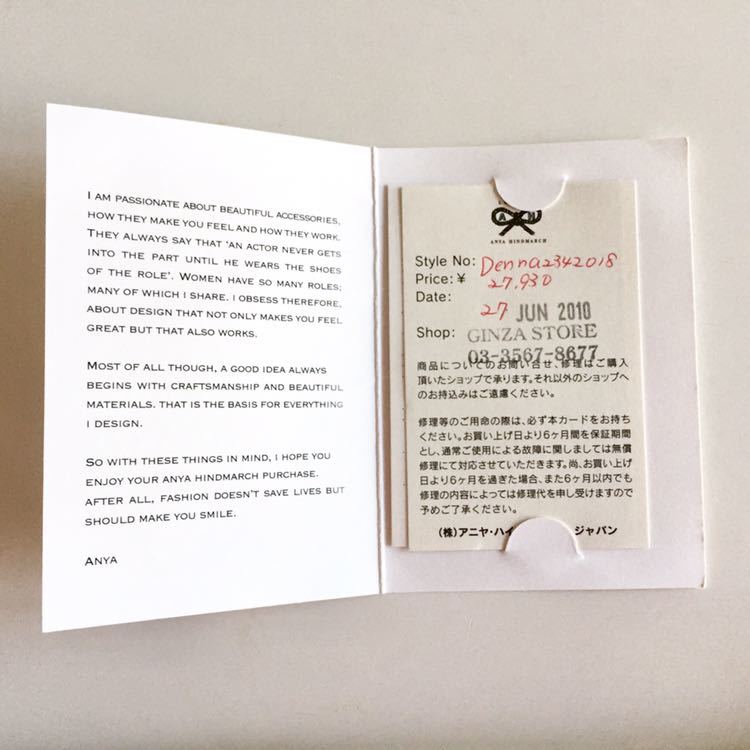 I AM PASSIONATE ABOUT BEAUTIFUL ACCESSORIES,
HOW THEY MAKE YOU FEEL AND HOW THEY WORK.
THEY ALWAYS SAY THAT 'AN ACTOR NEVER GETS
INTO THE PART UNTIL HE WEARS THE SHOES
OF THE ROLE'. WOMEN HAVE SO MANY ROLES;
MANY OF WHICH I SHARE. I OBSESS THEREFORE,
ABOUT DESIGN THAT NOT ONLY MAKES YOU FEEL
GREAT BUT THAT ALSO WORKS.
MOST OF ALL THOUGH, A GOOD IDEA ALWAYS
BEGINS WITH CRAFTSMANSHIP AND BEAUTIFUL
MATERIALS. THAT IS THE BASIS FOR EVERYTHING
I DESIGN.
SO WITH THESE THINGS IN MIND, I HOPE YOU
ENJOY YOUR ANYA HINDMARCH PURCHASE.
AFTER ALL, FASHION DOESN'T SAVE LIVES BUT
SHOULD MAKE YOU SMILE.
ANYA
A H
ANYA HINDMARCH
Style No: Denna2342018
Price: ¥ 27,930
Date: 27 JUN 2010
Shop: GINZA STORE
03-3567-8677
商品についてのお問い合せ、修理はご購入
頂いたショップで承ります。それ以外のショップへ
のお持込みはご遠慮ください。
修理等のご用命の際は、必ず本カードをお持ち
ください。お買い上げ日より6ヶ月間を保証期間
とし、通常ご使用による故障に関しましては無償
修理にて対応させていただきます。尚、お買い上げ
日より6ヶ月を過ぎた場合、また6ヶ月以内でも
修理の内容によっては修理代を申し受けますので
予めご了承ください。
(株)アニヤ・ハイ ジャパン